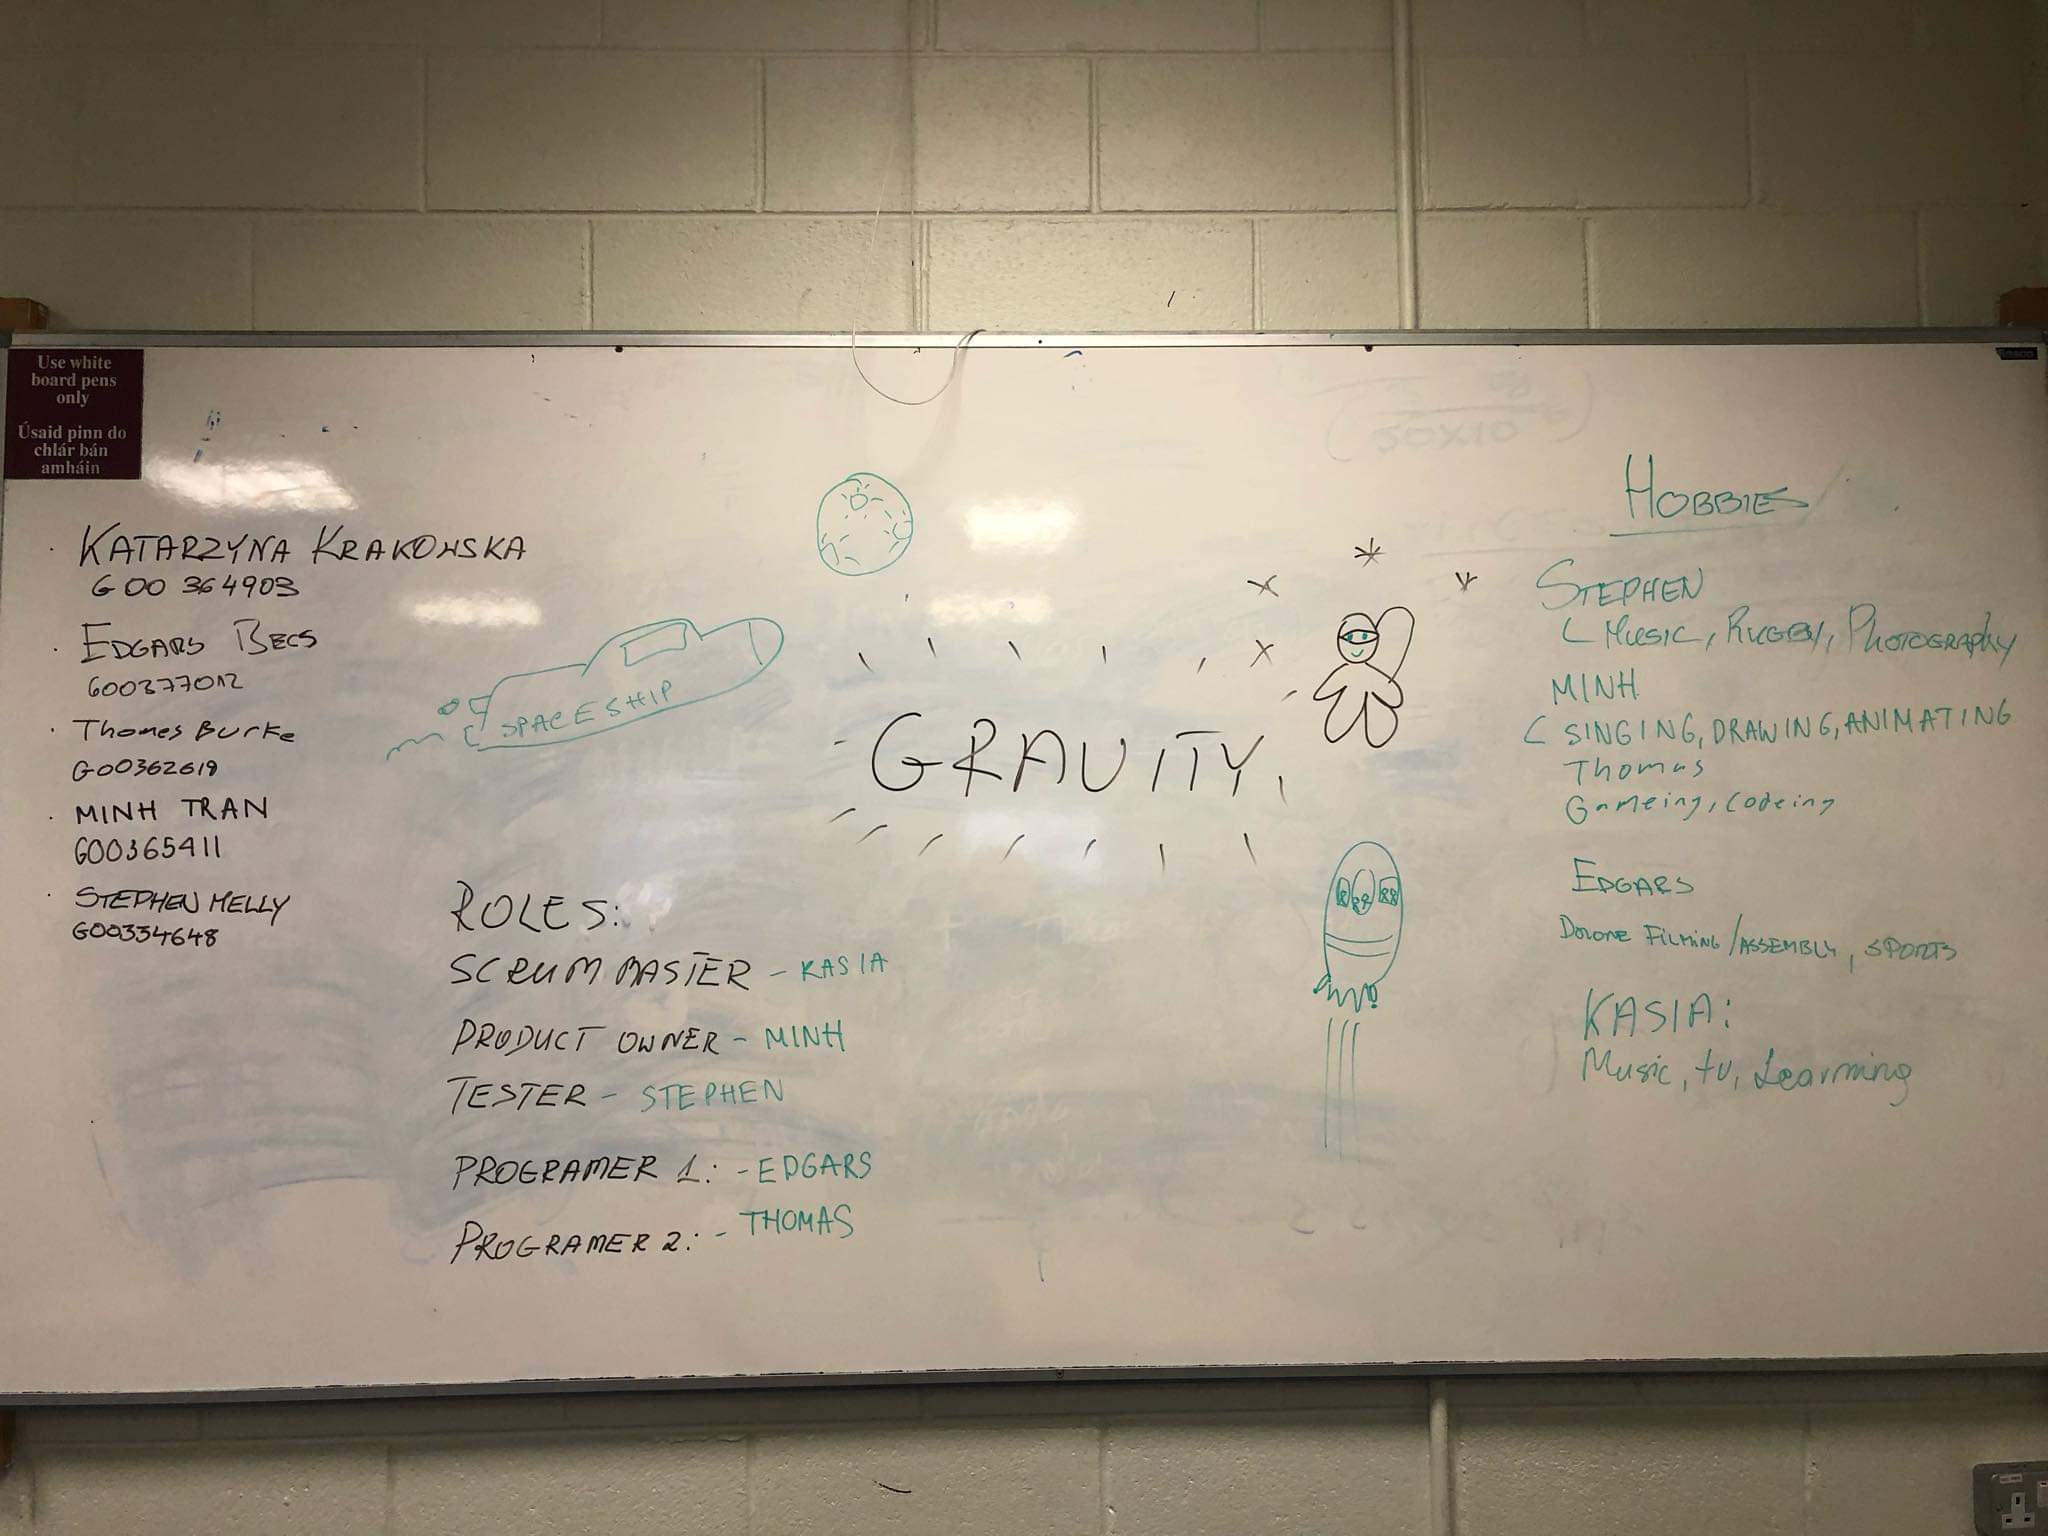 Use white
board pens
only
Úsaid pinn do
chlár bán
amháin
KATARZYNA KRAKOWSKA
G00 364903
EDGARS BECS
G00377012
Thomas Burke
G00362619
MINH TRAN
G00365411
STEPHEN MELLY
G00334648
SPACESHIP
GRAVITY
ROLES:
SCRUM MASTER - KASIA
PRODUCT OWNER - MINH
TESTER - STEPHEN
PROGRAMER 1: - EDGARS
PROGRAMER 2: - THOMAS
HOBBIES
STEPHEN
MUSIC, RUGBY, PHOTOGRAPHY
MINH
SINGING, DRAWING, ANIMATING
Thomas
Gameing, Codeing
EDGARS
DRONE FILMING/ASSEMBLY, SPORTS
KASIA:
Music, tv, Learning